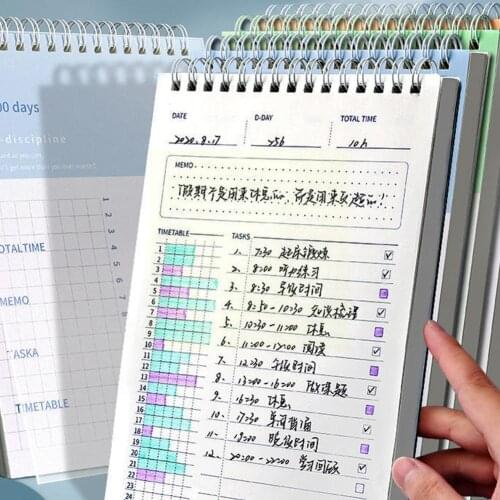 00 days
-discipline
TOTALTIME
MEMO
TASKA
TIMETABLE
DATE D-DAY TOTAL TIME
2020.8.17 256 10h
MEMO:
假期不是用来休息的，而是用来超的！
TIMETABLE TASKS
1. 7:30 起床锻炼
2. 8:00 听力练习
3. 8:30 早饭时间
4. 8:50-10:30 知识梳理
5. 10:30-11:00 休息
6. 11:00-12:00 阅读
7. 12:30 午饭时间
8. 13:00-16:00 做课题
9. 16:30 休息
10. 17:30 单词背诵
11. 18:00 晚饭时间
12. 20:00-22:00 学习
1
2
3
4
5
6
7
8
9
10
11
12
13
14
15
16
17
18
19
20
21
22
23
24
1
2
3
4
5
6
7
8